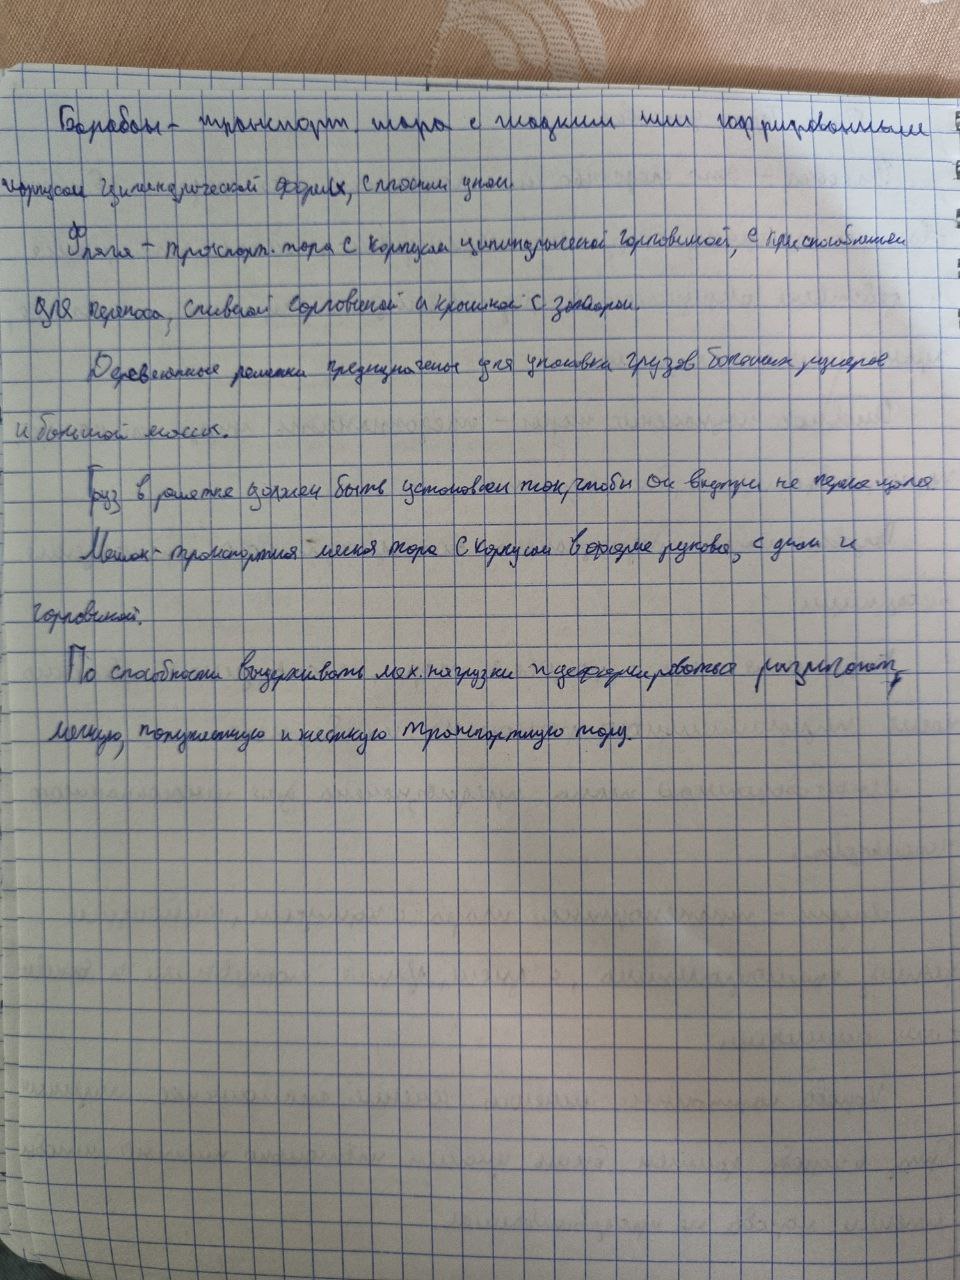 Барабан - транспорт. тара с гладким или гофрированным
корпусом цилиндрической формы, с плоским дном.
Фляга - транспорт. тара с корпусом цилиндрической горловиной, с приспособлением
для переноса, сливной горловиной и крышкой с затвором.
Деревянные решетки предназначены для упаковки грузов больших размеров
и большой массы.
Груз в решетке должен быть установлен так, чтобы он внутри не перемещался
Мешок - транспортная мягкая тара с корпусом в форме рукава, с дном и
горловиной.
По способности выдерживать мех. нагрузки и деформироваться различают,
мягкую, полужесткую и жесткую транспортную тару.